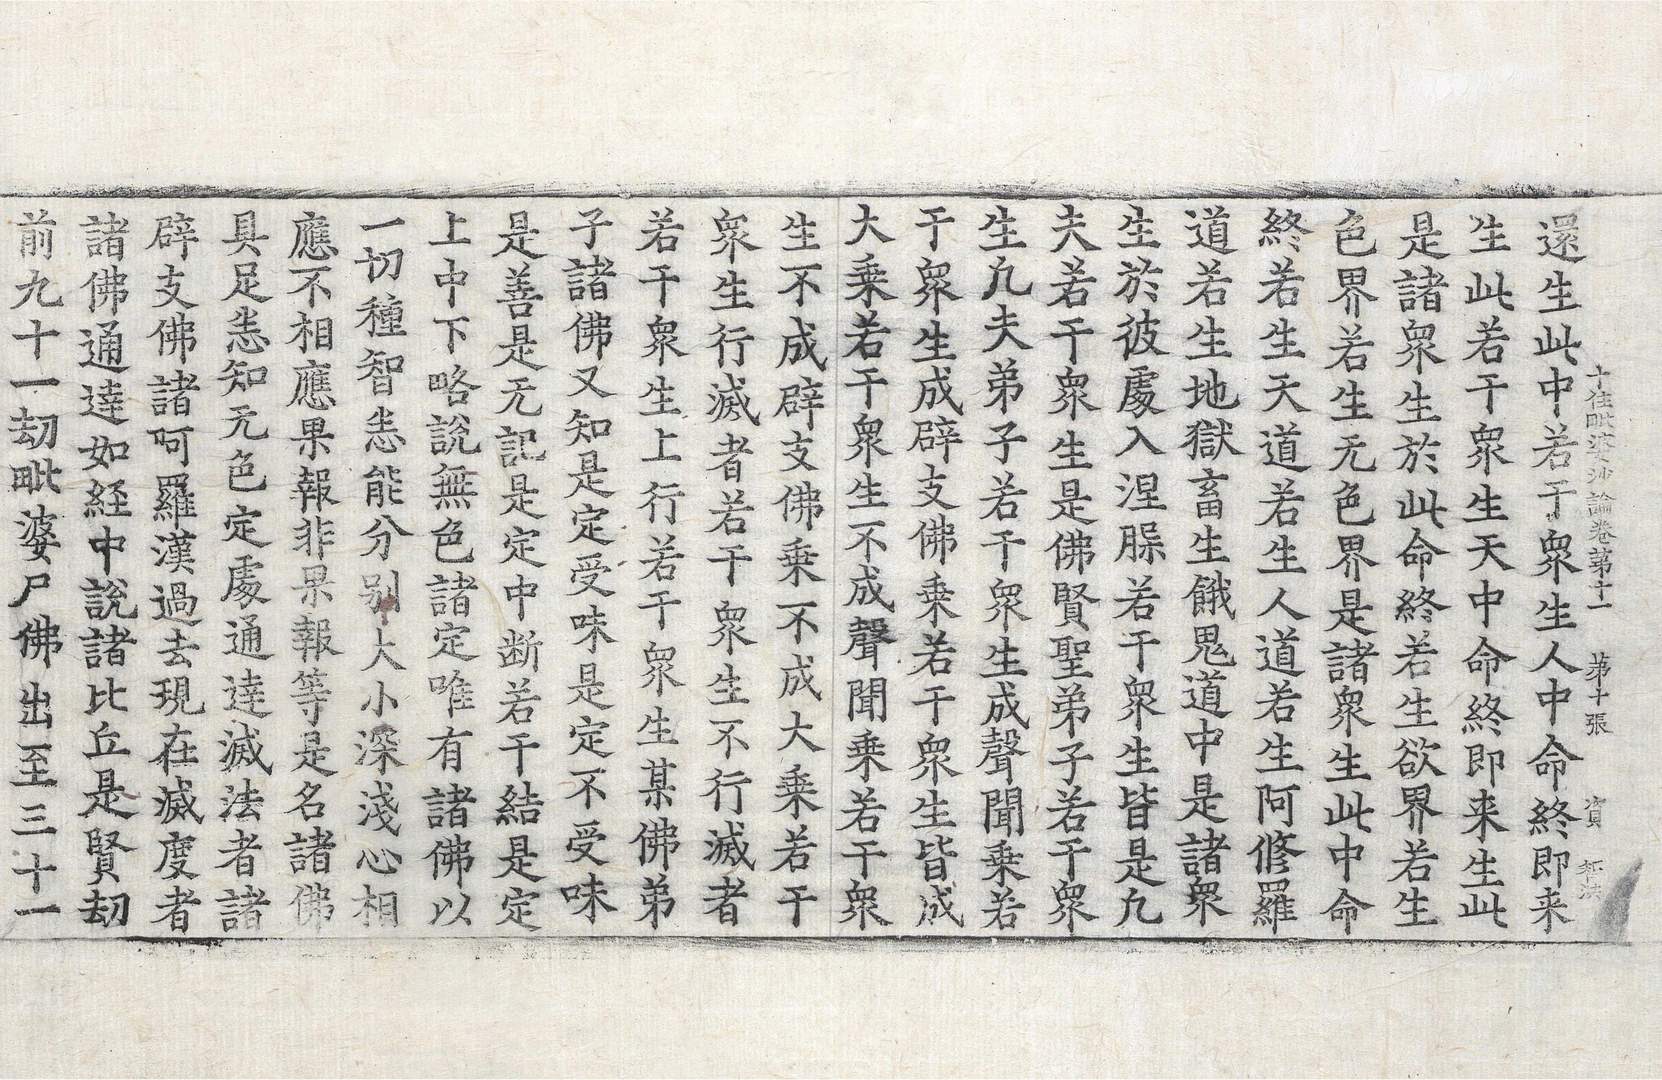 十住毗婆沙論卷第十一 第十張 資 
還生此中若干衆生人中命終即来
生此若干衆生天中命終即来生此
是諸衆生於此命終若生欲界若生
色界若生无色界是諸衆生此中命
終若生天道若生人道若生阿修羅
道若生地獄畜生餓鬼道中是諸衆
生於彼處入涅脲若干衆生皆是凢
夫若干衆生是佛賢聖弟子若干衆
生凢夫弟子若干衆生成聲聞乗若
干衆生成辟支佛乗若干衆生皆成
大乗若干衆生不成聲聞乗若干衆
生不成辟支佛乗不成大乗若干
衆生行滅者若干衆生不行滅者
若干衆生上行若干衆生某佛弟
子諸佛又知是定受味是定不受味
是善是无記是定中断若干結是定
上中下略說無色諸定唯有諸佛以
一切種智悉能分别大小深淺心相
應不相應果報非果報等是名諸佛
具足悉知无色定處通達滅法者諸
辟支佛諸阿羅漢過去現在滅度者
諸佛通達如経中說諸比丘是賢劫
前九十一劫毗婆尸佛出至三十一